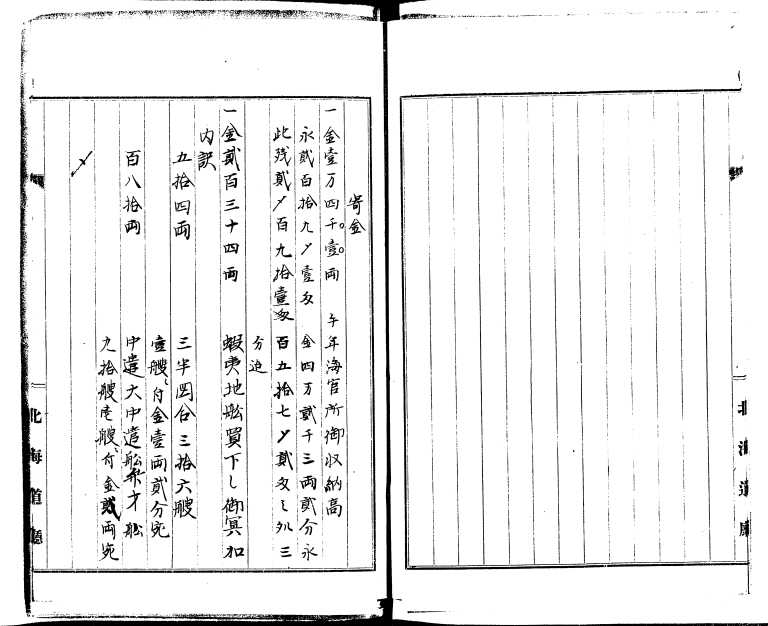 寄金
一金壹万四千〇壹〇両 午年海官所御収納高
永貳百拾九〆壹匁 金四万貳千三両貳分永
此残貳〆百九拾壹匁 百五拾七〆貳匁之外三
分迄
一金貳百三十四両 蝦夷地舩買下し御冥加
内訳
五拾四両 三半図合三拾六艘
壹艘ニ付金壹両貳分宛
百八拾両 中遣大中遣舩弁才舩
九拾艘壱艘ニ付金貳両宛
北海道廳
北海道廳